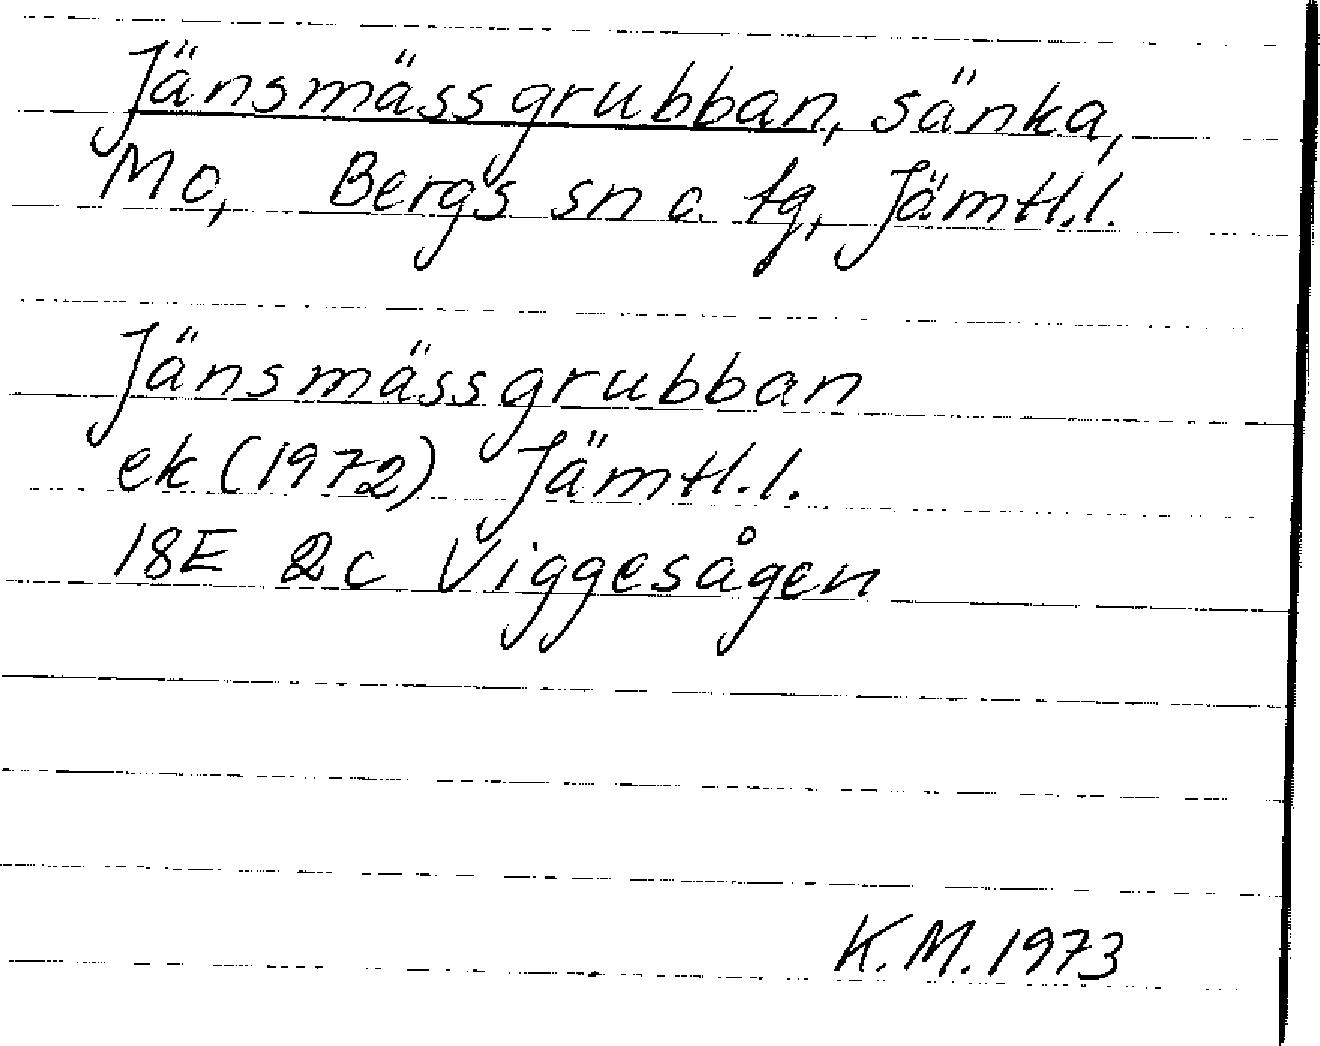 Jänsmässgrubban, sänka,
Mo, Bergs sn o. tg, Jämtl.l.
Jänsmässgrubban
ek (1972) Jämtl.l.
18E 2c Viggesågen
K.M. 1973